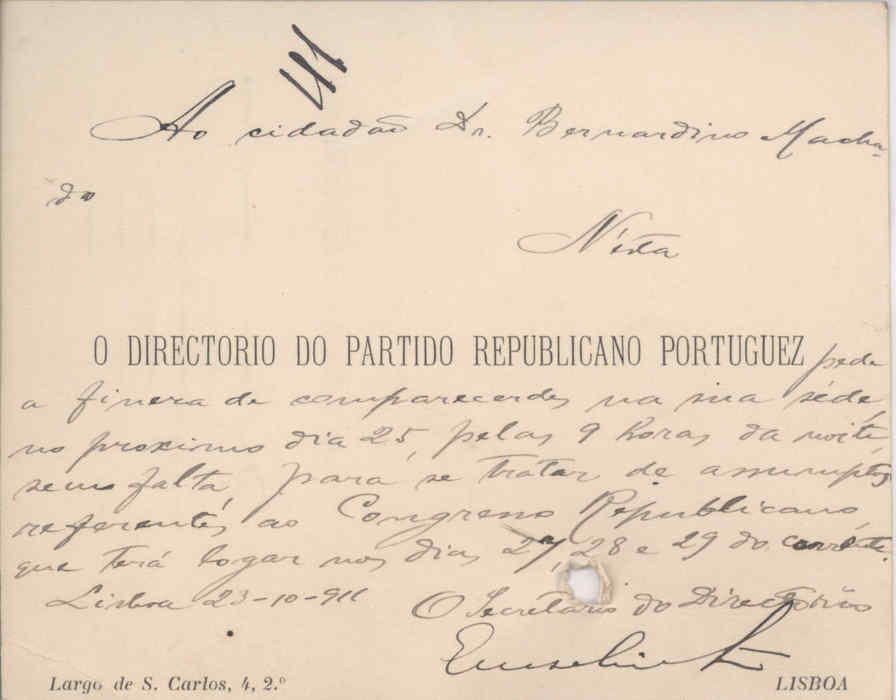 Ao cidadão Dr. Bernardino Macha-
do
N'esta
O DIRECTORIO DO PARTIDO REPUBLICANO PORTUGUEZ pede
a fineza de comparecerdes na sua séde,
no proximo dia 25, pelas 9 horas da noite,
sem falta, para se tratar de assumptos
referentes ao Congresso Republicano
que terá logar nos dias 27, 28 e 29 do corrente.
Lisboa 23-10-911
O Secretario do Directorio
Eusebio
Largo de S. Carlos, 4, 2.º
LISBOA